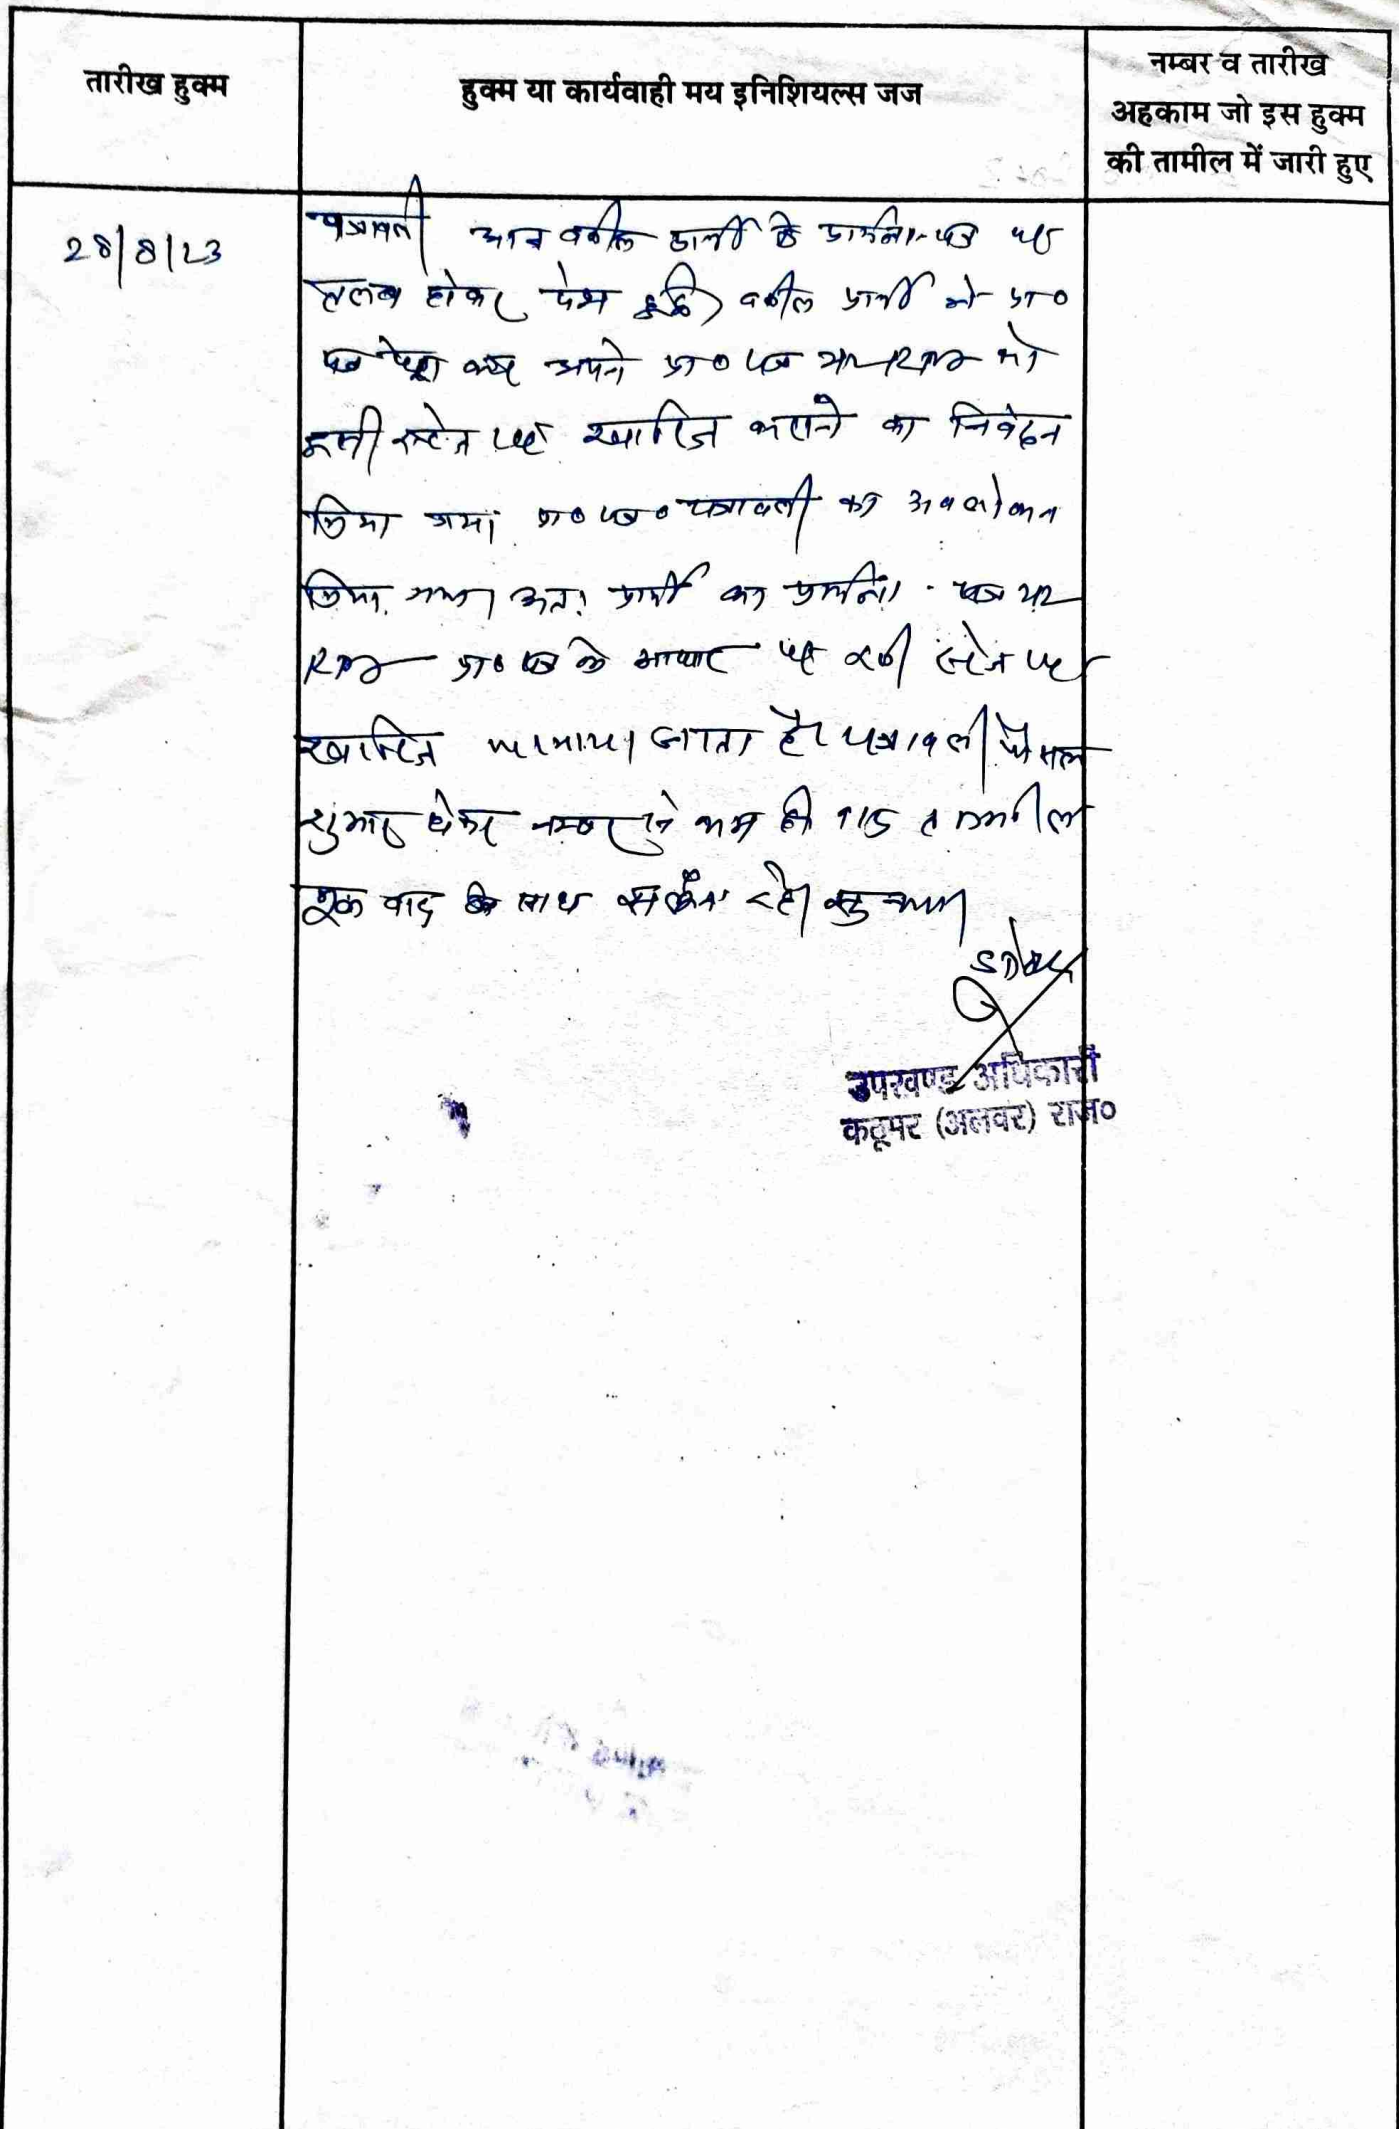 तारीख हुक्म
हुक्म या कार्यवाही मय इनिशियल्स जज
नम्बर व तारीख
अहकाम जो इस हुक्म
की तामील में जारी हुए
28/8/23
पत्रावली आज वकील प्रार्थी के प्रार्थना-पत्र पर
तलब होकर पेश हुई। वकील प्रार्थी ने प्रा०
पत्र पेश कर अपने प्रा० पत्र को
इसी स्टेज पर खारिज कराने का निवेदन
किया गया। प्रा० पत्र० पत्रावली का अवलोकन
किया गया। अतः प्रार्थी का प्रार्थना-पत्र
प्रा० पत्र के आधार पर इसी स्टेज पर
खारिज फरमाया जाता है। पत्रावली फैसल
शुमार होकर नम्बर से कम हो बाद तामील
मूल वाद के साथ संलग्न रहे।
उपखण्ड अधिकारी
कठूमर (अलवर) राज०